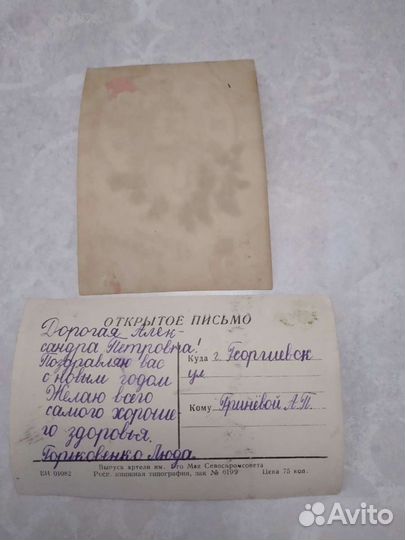 ОТКРЫТОЕ ПИСЬМО
Дорогая Алек-
сандра Петровна!
Поздравляю вас
с новым годом
Желаю всего
самого хороше-
го здоровья.
Горковенко Люда.
Куда г. Георгиевск
ул
Кому Гринёвой А.П.
Выпуск артели им. 1-го Мая Севоспромсовета
Росг. книжная типография, зак № 0199 Цена 75 коп.
Avito